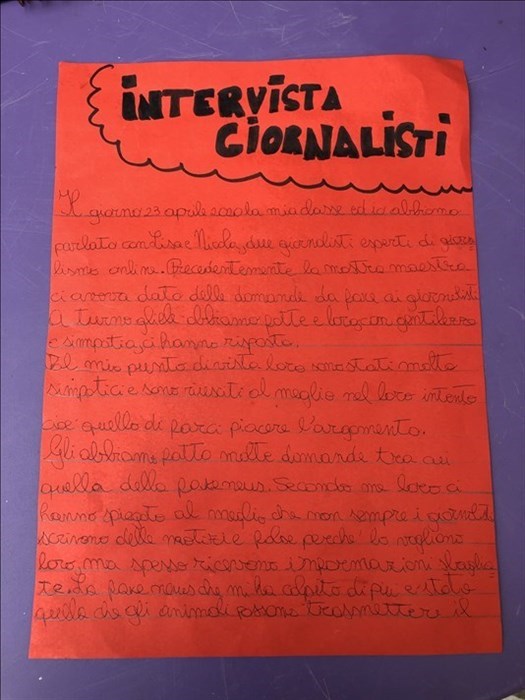 INTERVISTA
GIORNALISTI
Il giorno 23 aprile 2020 la mia classe ed io abbiamo
parlato con Lisa e Nicola, due giornalisti esperti di gior
lismo online. Precedentemente la nostra maestra
ci aveva dato delle domande da fare ai giornalisti
A turno gliele abbiamo fatte e loro, con gentilezza
e simpatia, ci hanno risposto.
Dal mio punto di vista loro sono stati molto
simpatici e sono riusciti al meglio nel loro intento
cioè quello di farci piacere l'argomento.
Gli abbiamo fatto molte domande tra cui
quella della fake news. Secondo me loro ci
hanno spiegato al meglio che non sempre i giornalisti
scrivono delle notizie false perché lo vogliono
loro, ma spesso ricevono informazioni sbaglia
te. La fake news che mi ha colpito di più è stata
quella che gli animali possono trasmettere il